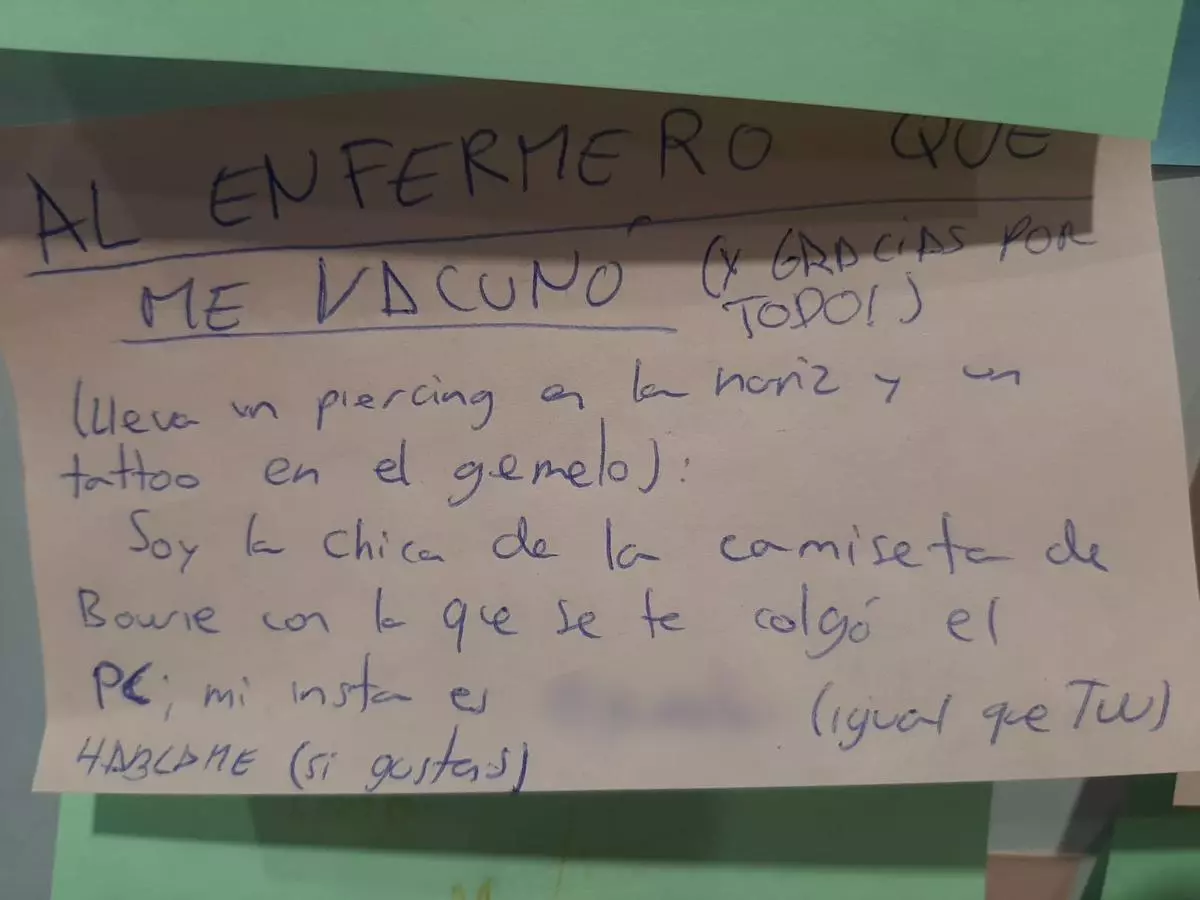 AL ENFERMERO QUE
ME VACUNÓ (Y GRACIAS POR
TODO!)
(lleva un piercing en la nariz y un
tattoo en el gemelo):
Soy la chica de la camiseta de
Bowie con la que se te colgó el
PC; mi insta es (igual que TW)
HABLAME (si gustas)